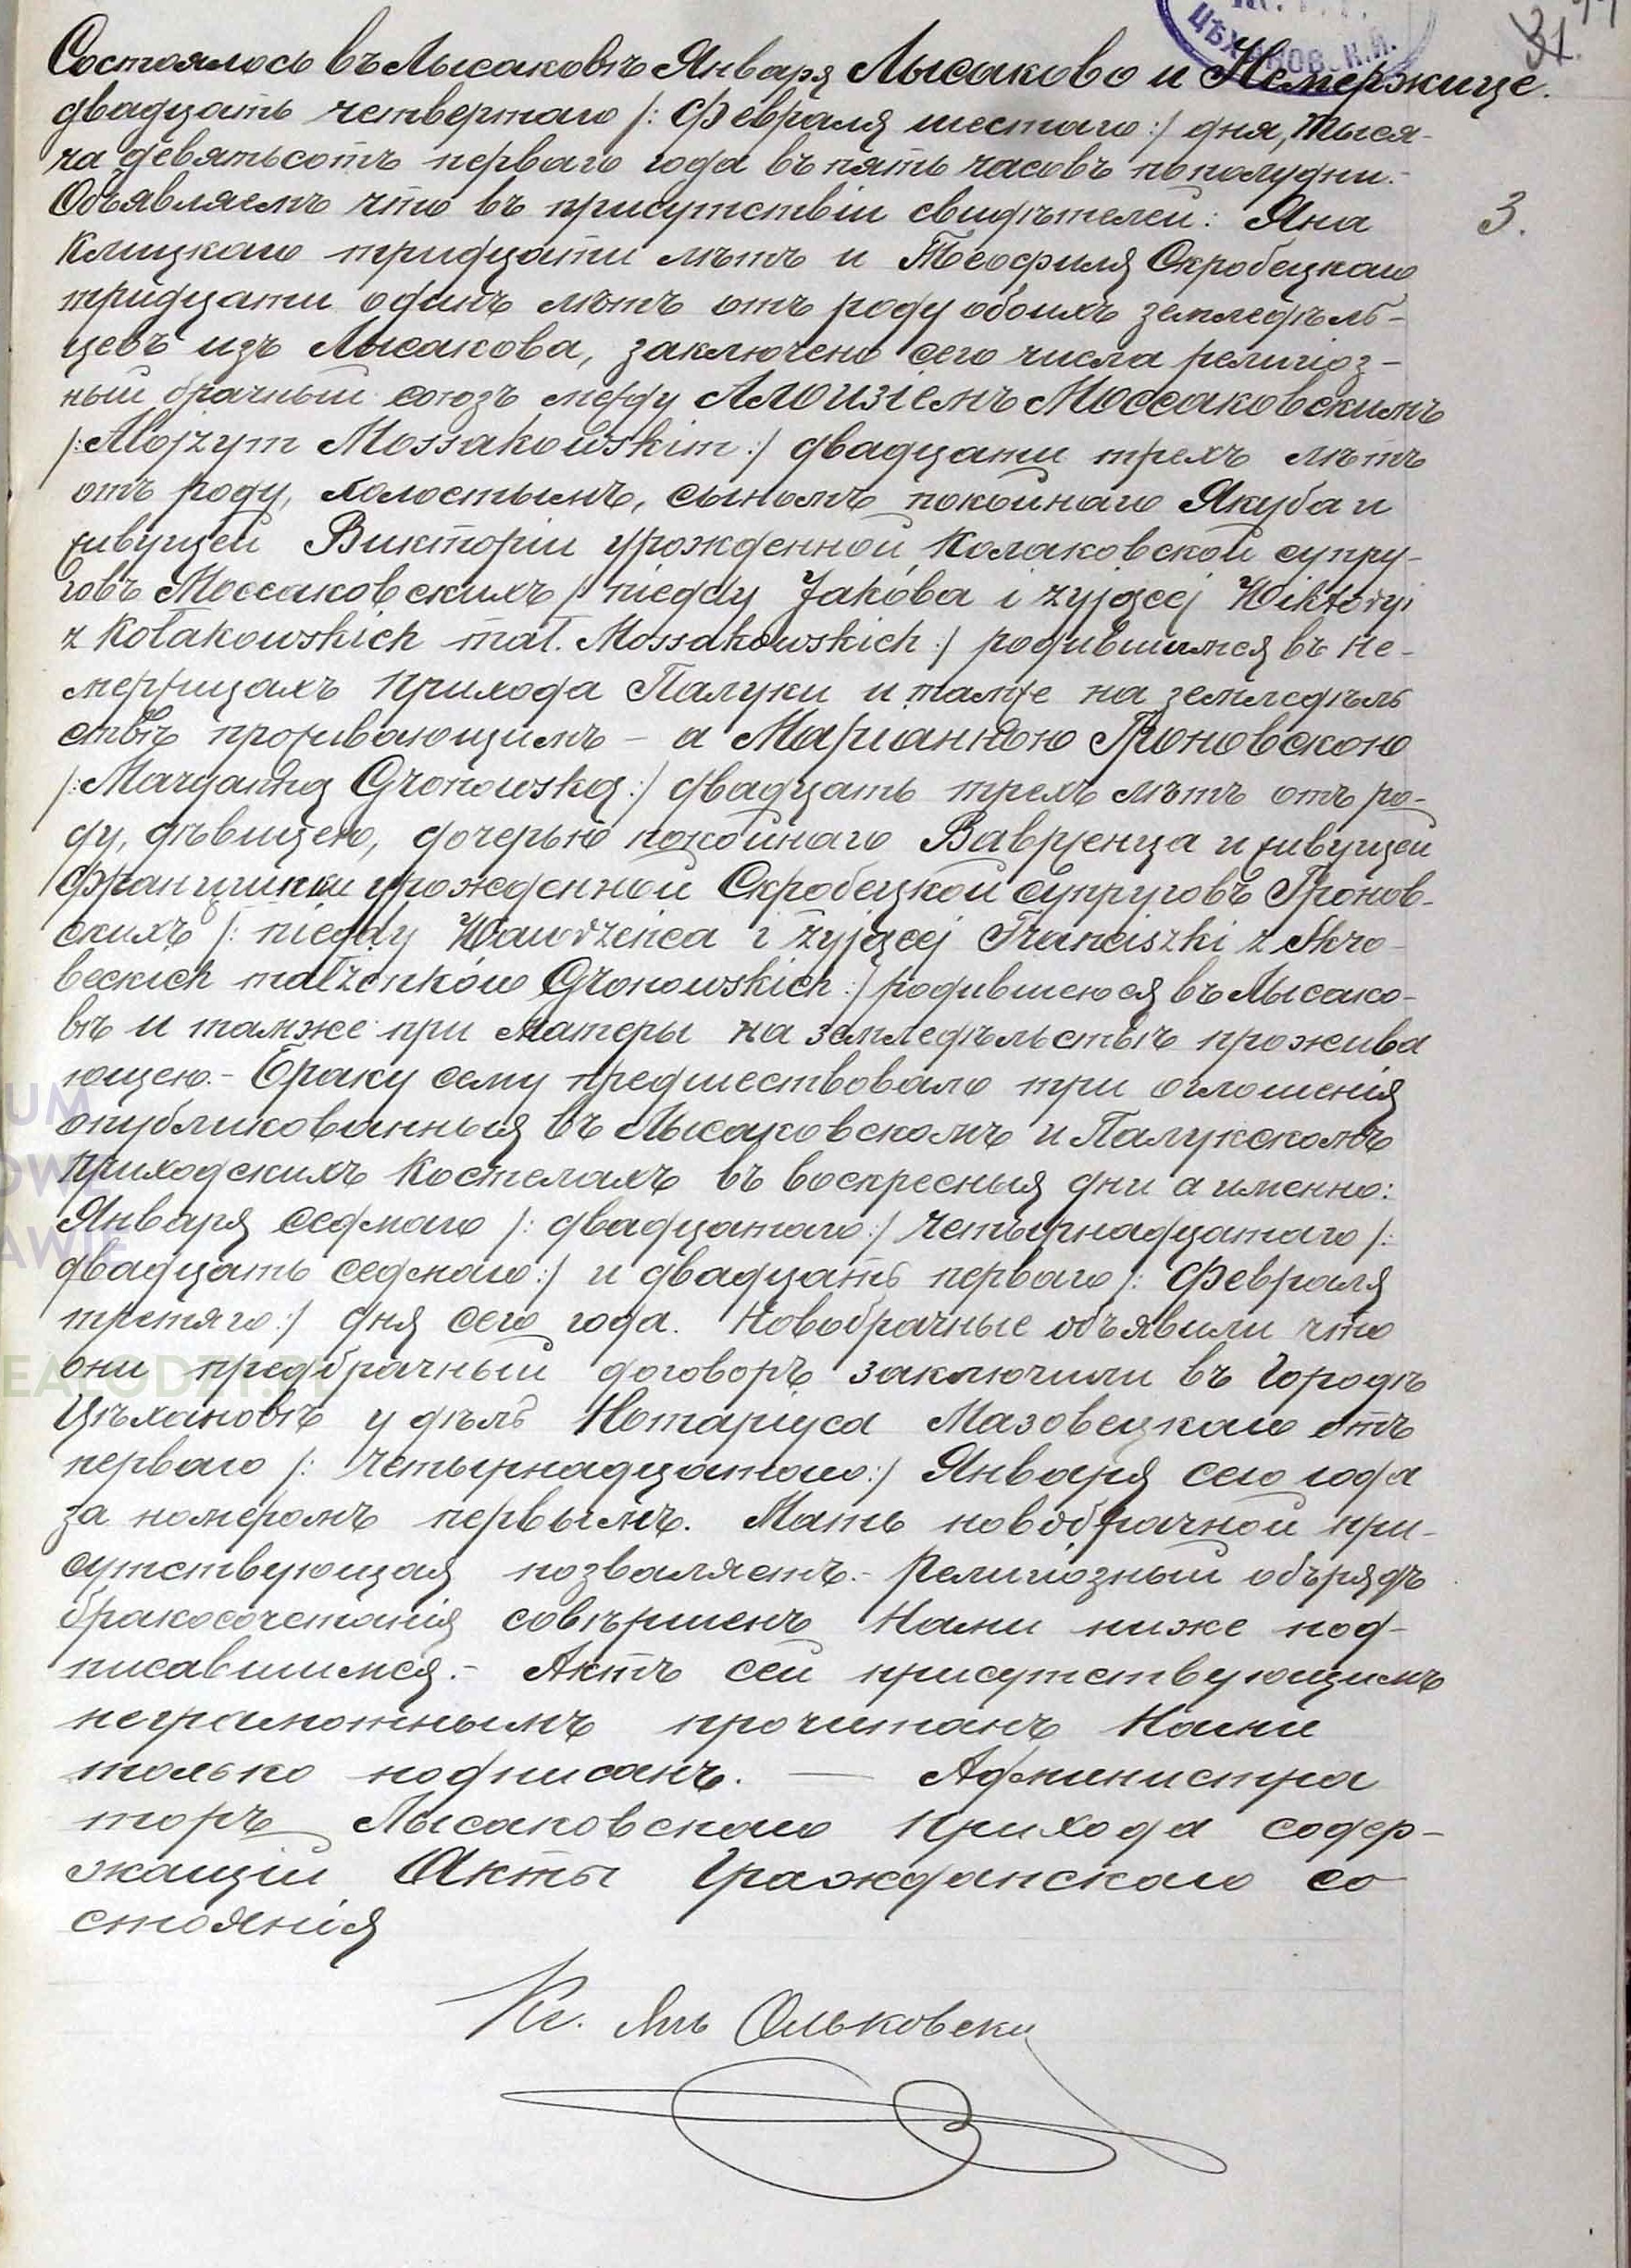 31.
Лысаково и Немержице.
3.
Состоялось въ Лысаковѣ Января
двадцать четвертаго /: Февраля шестаго :/ дня, тыся-
ча девятьсотъ перваго года въ пять часовъ пополудни.-
Объявляемъ что въ присутствіи свидѣтелей: Яна
Клицкаго тридцати лѣтъ и Теофиля Скробецкаго
тридцати одинъ лѣтъ отъ роду обоихъ земледѣль-
цевъ изъ Лысакова, заключено сего числа религіоз-
ный брачный союзъ между Алоизіемъ Моссаковскимъ
/: Alojzym Mossakowskim :/ двадцати трехъ лѣтъ
отъ роду, холостымъ, сыномъ покойнаго Якуба и
живущей Викторіи урожденной Колаковской супру-
говъ Моссаковскихъ /: niegdy Jakóba i żyjącej Wiktoryi
z Kołakowskich mał. Mossakowskich :/ родившимся въ Не-
мержицахъ прихода Палуки и тамже на земледѣль
ствѣ проживающимъ - а Маріанною Гроновскою
/: Maryanną Gronowską :/ двадцать трехъ лѣтъ отъ ро-
ду, дѣвицею, дочерью покойнаго Ваврженца и живущей
Францишки урожденной Скробецкой супруговъ Гронов-
скихъ /: niegdy Wawrzeńca i żyjącej Franciszki z Skro-
beckich małżonków Gronowskich :/ родившеюся въ Лысако-
вѣ и тамже при матеры на земледѣльствѣ прожива
ющею.- Браку сему предшествовало три оглошенія
опубликованныя въ Лысаковскомъ и Палукскомъ
приходскихъ костелахъ въ воскресныя дни а именно:
Января седмаго /: двадцатаго :/ четырнадцатаго /:
двадцать седмаго :/ и двадцать перваго /: Февраля
третяго :/ дня сего года. Новобрачные объявили что
они предбрачный договоръ заключили въ городѣ
Цѣхановѣ у дѣлъ Нотаріуса Мазовецкаго отъ
перваго /: четырнадцатаго :/ Января сего года
за номеромъ первымъ. Мать новобрачной при-
сутствующая позваляетъ.- Религіозный обърядъ
бракосочетанія совѣршенъ Нами ниже под-
писавшимся.- Актъ сей присутствующимъ
неграмотнымъ прочитанъ Нами
только подписанъ. — Администра
торъ Лысаковскаго прихода содер-
жащій Акты Гражданскаго со
стоянія
Кс. Янъ Ольковски